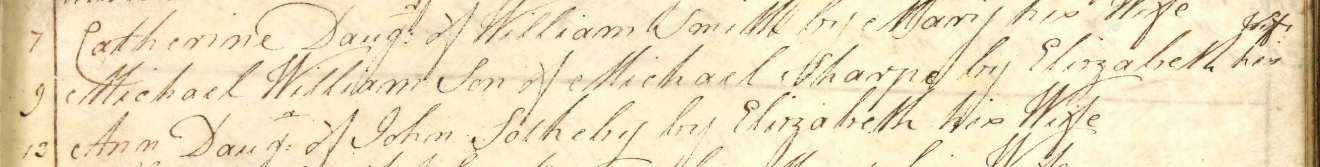 7 Catherine Daugr. of William Smith by Mary his Wife
9 Michael William Son of Michael Sharpe by Elizabeth his Wife
13 Ann Daugr. of John Sotheby by Elizabeth his Wife